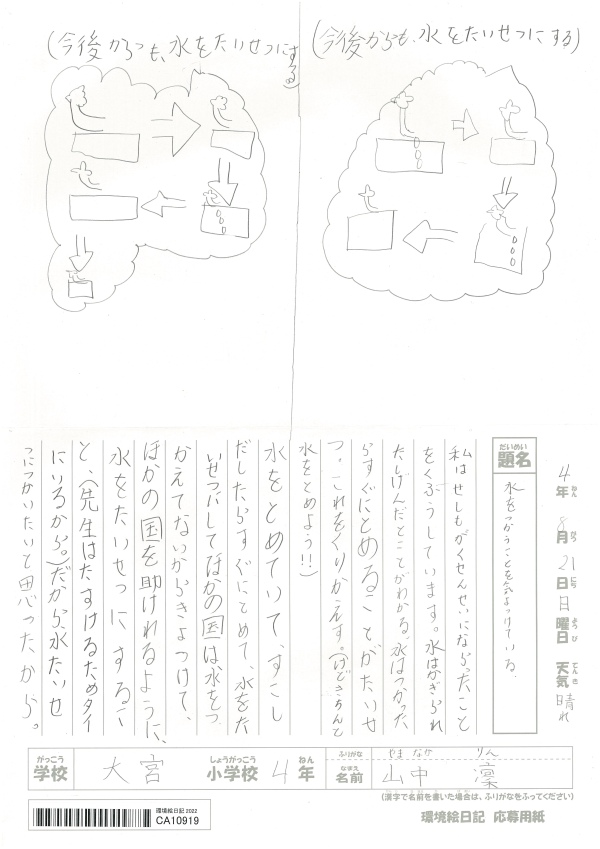 (今後からも、水をたいせつにする)
(今後からも、水をたいせつにする)
4年 8月 21日 日曜日 天気 晴れ
ねん がつ にち ようび てんき
だいめい
題名
水をつかうことを気よつけている。
私はせしもがくせんせいにならったこと
をくふうしています。水はかぎられ
たしげんだとことがわかる。水はつかった
らすぐにとめることがたいせ
つ。これをくりかえす。(けどきちんと
水をとめよう!!)
水をとめていて、すこし
だしたらすぐにとめて、水をた
いせつにしてほかの国は水をつ
かえてないからきよつけて、
ほかの国を助けれるように、
水をたいせつにするこ
と、(先生はたすけるためタイ
にいるから。)だから、水たいせ
つにつかいたいと思ったから。
がっこう しょうがっこう ねん
学校 大宮 小学校 4年
ふりがな やまなか りん
なまえ
名前 山中 凜
(漢字で名前を書いた場合は、ふりがなをふってください)
環境絵日記 2022
CA10919
環境絵日記 応募用紙